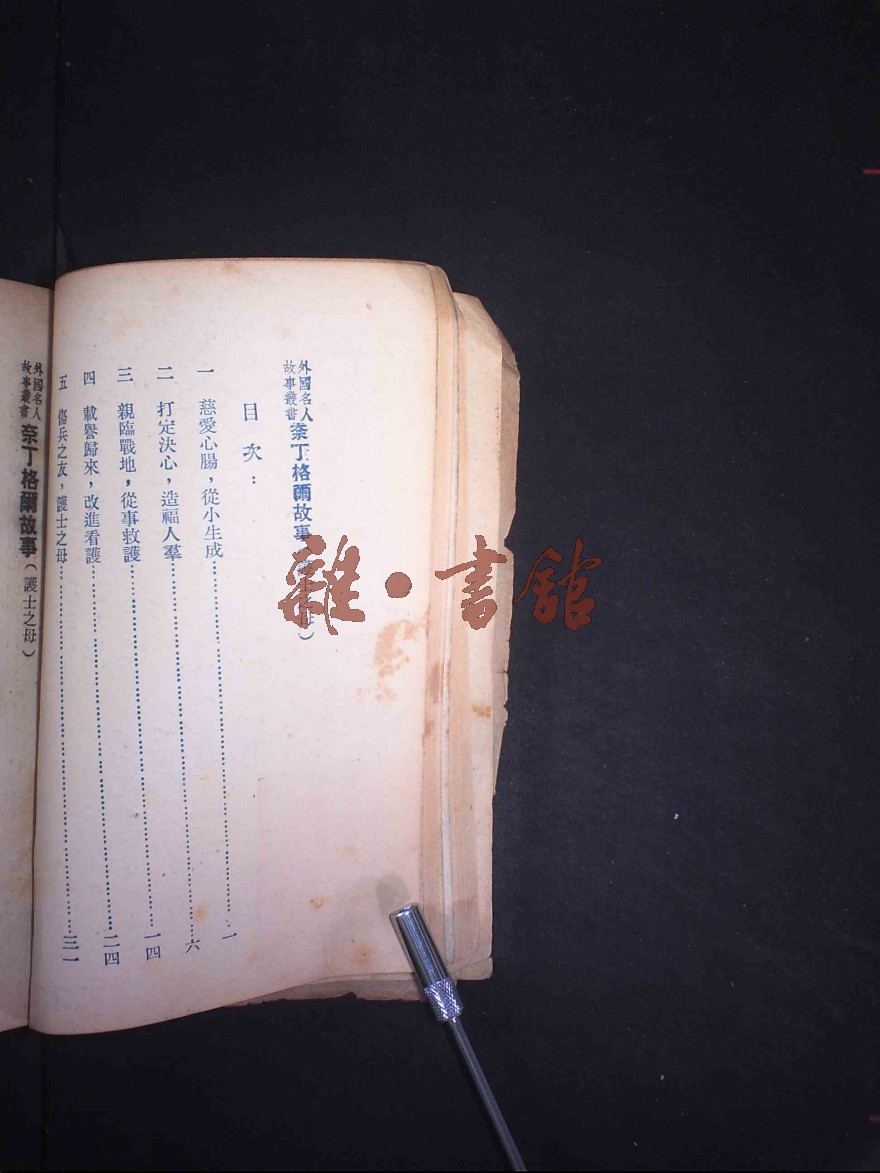 外國名人
故事叢書
奈丁格爾故事(護士之母)
目次:
一 慈愛心腸,從小生成……一
二 打定決心,造福人羣……六
三 親臨戰地,從事救護……一四
四 載譽歸來,改進看護……二四
五 傷兵之友,護士之母……三一
外國名人
故事叢書
奈丁格爾故事(護士之母)
雜·書館